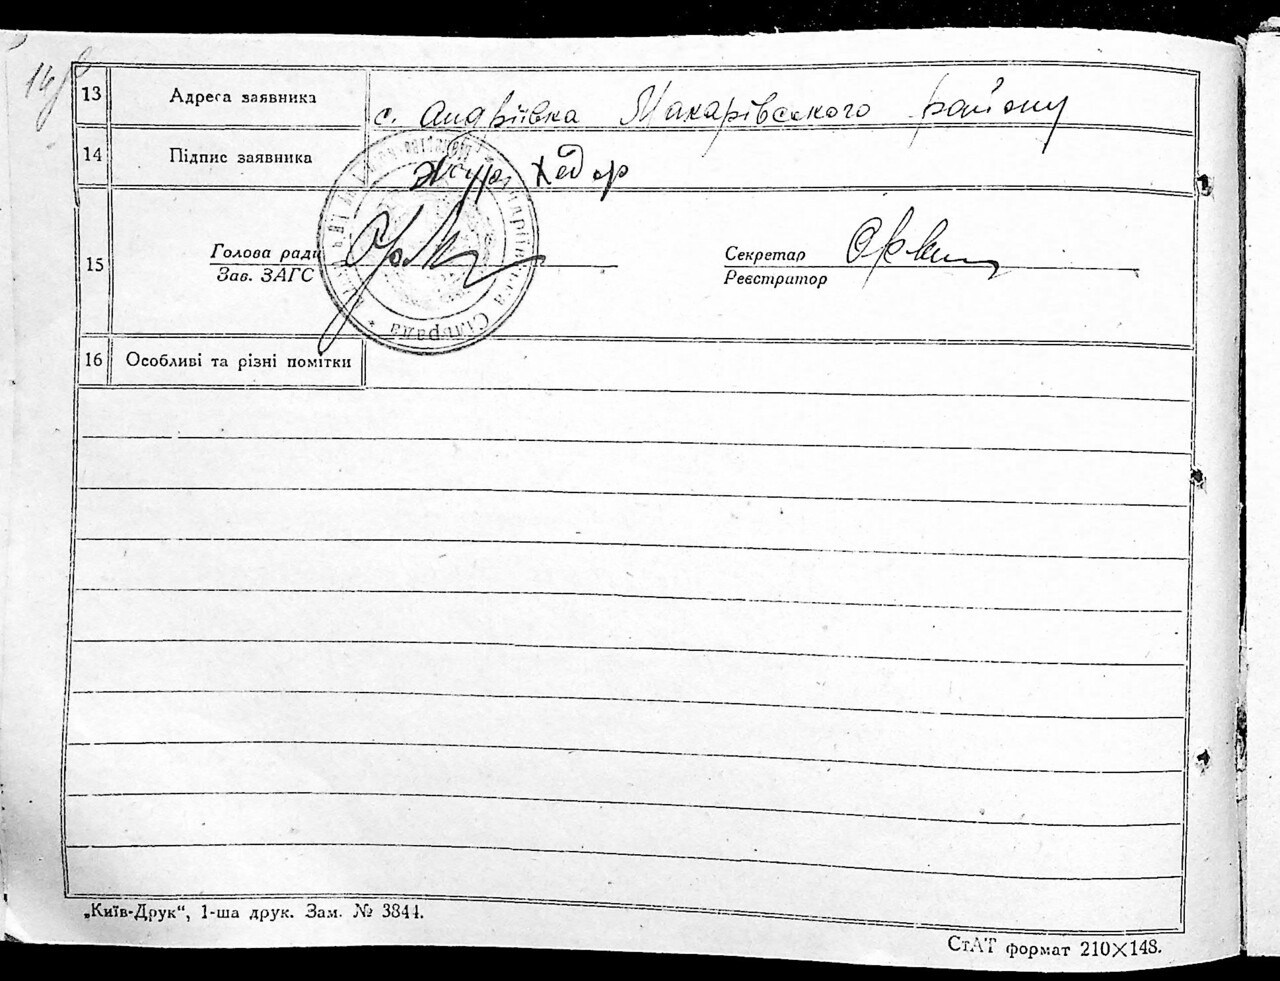 13 Адреса заявника с. Андріївка Макарівського району
14 Підпис заявника Хедор
15 Голова ради
Зав. ЗАГС
Секретар
Реєстратор
Сільрада
16 Особливі та різні помітки
„Київ-Друк“, 1-ша друк. Зам. № 3844.
СтАТ формат 210×148.